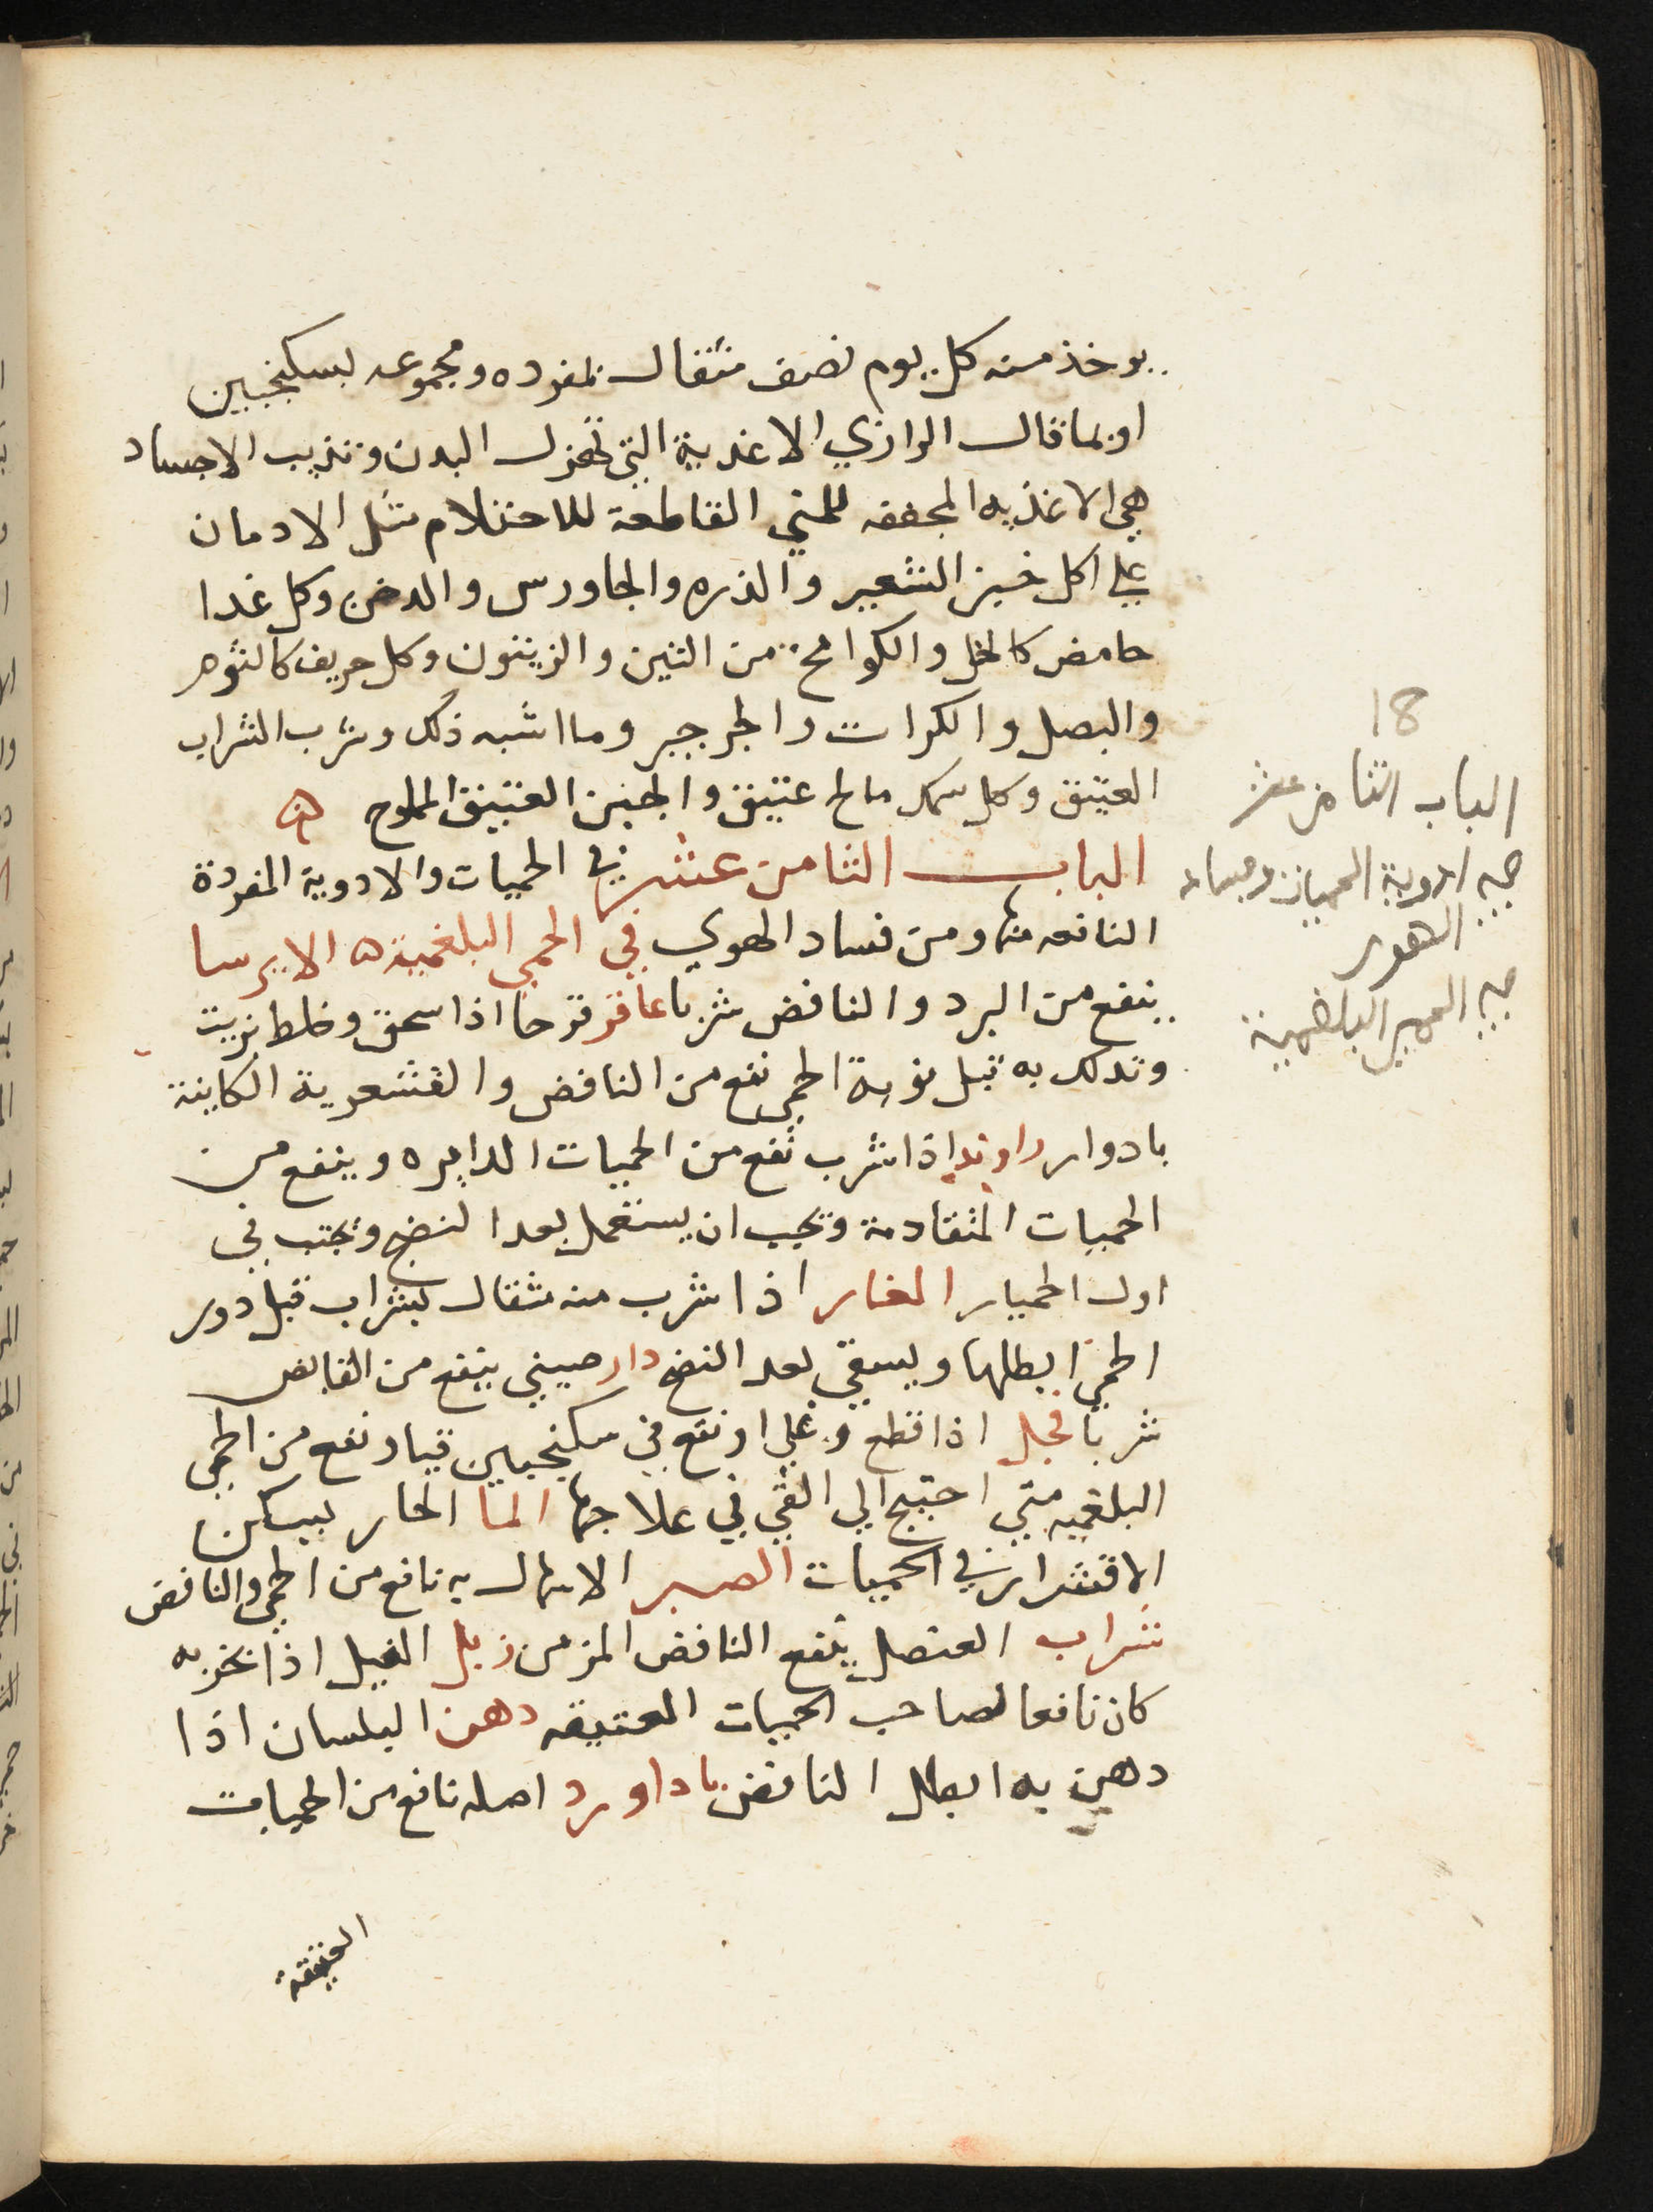 يوخذ منه كل يوم نصف مثقال بمفرده ومجموعه بسكنجبين
او بما قال الرازي الاغذية التي تهزل البدن وتذيب الاجساد
هي الاغذيه المجففه للمني القاطعة للاحتلام مثل الادمان
على اكل خبز الشعير والذره والجاورس والدخن وكل غدا
حامض كالخل والكوامخ من التين والزيتون وكل حريف كالثوم
والبصل والكرات والجرجير وما اشبه ذلك وشرب الشراب
العتيق وكل سمك مالح عتيق والجبن العتيق المملوح ه
الباب الثامن عشر في الحميات والادوية المفردة
النافعه منها ومن فساد الهوي في الحمي البلغمية ه الايرسا
ينفع من البرد والنافض شربا عاقر قرحا اذا سحق وخلط بزيت
وتدلك به قبل نوبة الحمي نفع من النافض والقشعرية الكاينة
بادوار راوند اذا شرب نفع من الحميات الدايره وينفع من
الحميات المتقادمة ويجب ان يستعمل بعد النضج ويجتنب في
اول الحميات الغار اذا شرب منه مثقال بشراب قبل دور
الحمي ابطلها ويسقي بعد النضج دار صيني ينفع من النافض
شربا فجل اذا قطع وغلي او نقع في سكنجبين قيا ونفع من الحمي
البلغميه متي احتيج الي القي في علاجها الما الحار يسكن
الاقشعرار في الحميات الصبر الاسهال به نافع من الحمي والنافض
شراب العنصل ينفع النافض المزمن زبل الفيل اذا بخر به
كان نافعا لصاحب الحميات العتيقه دهن البلسان اذا
دهن به ابطل النافض باداورد اصله نافع من الحميات
العتيقة
18
الباب الثامن عشر
في ادوية الحميات وفساد
الهوي
في الحمي البلغمية